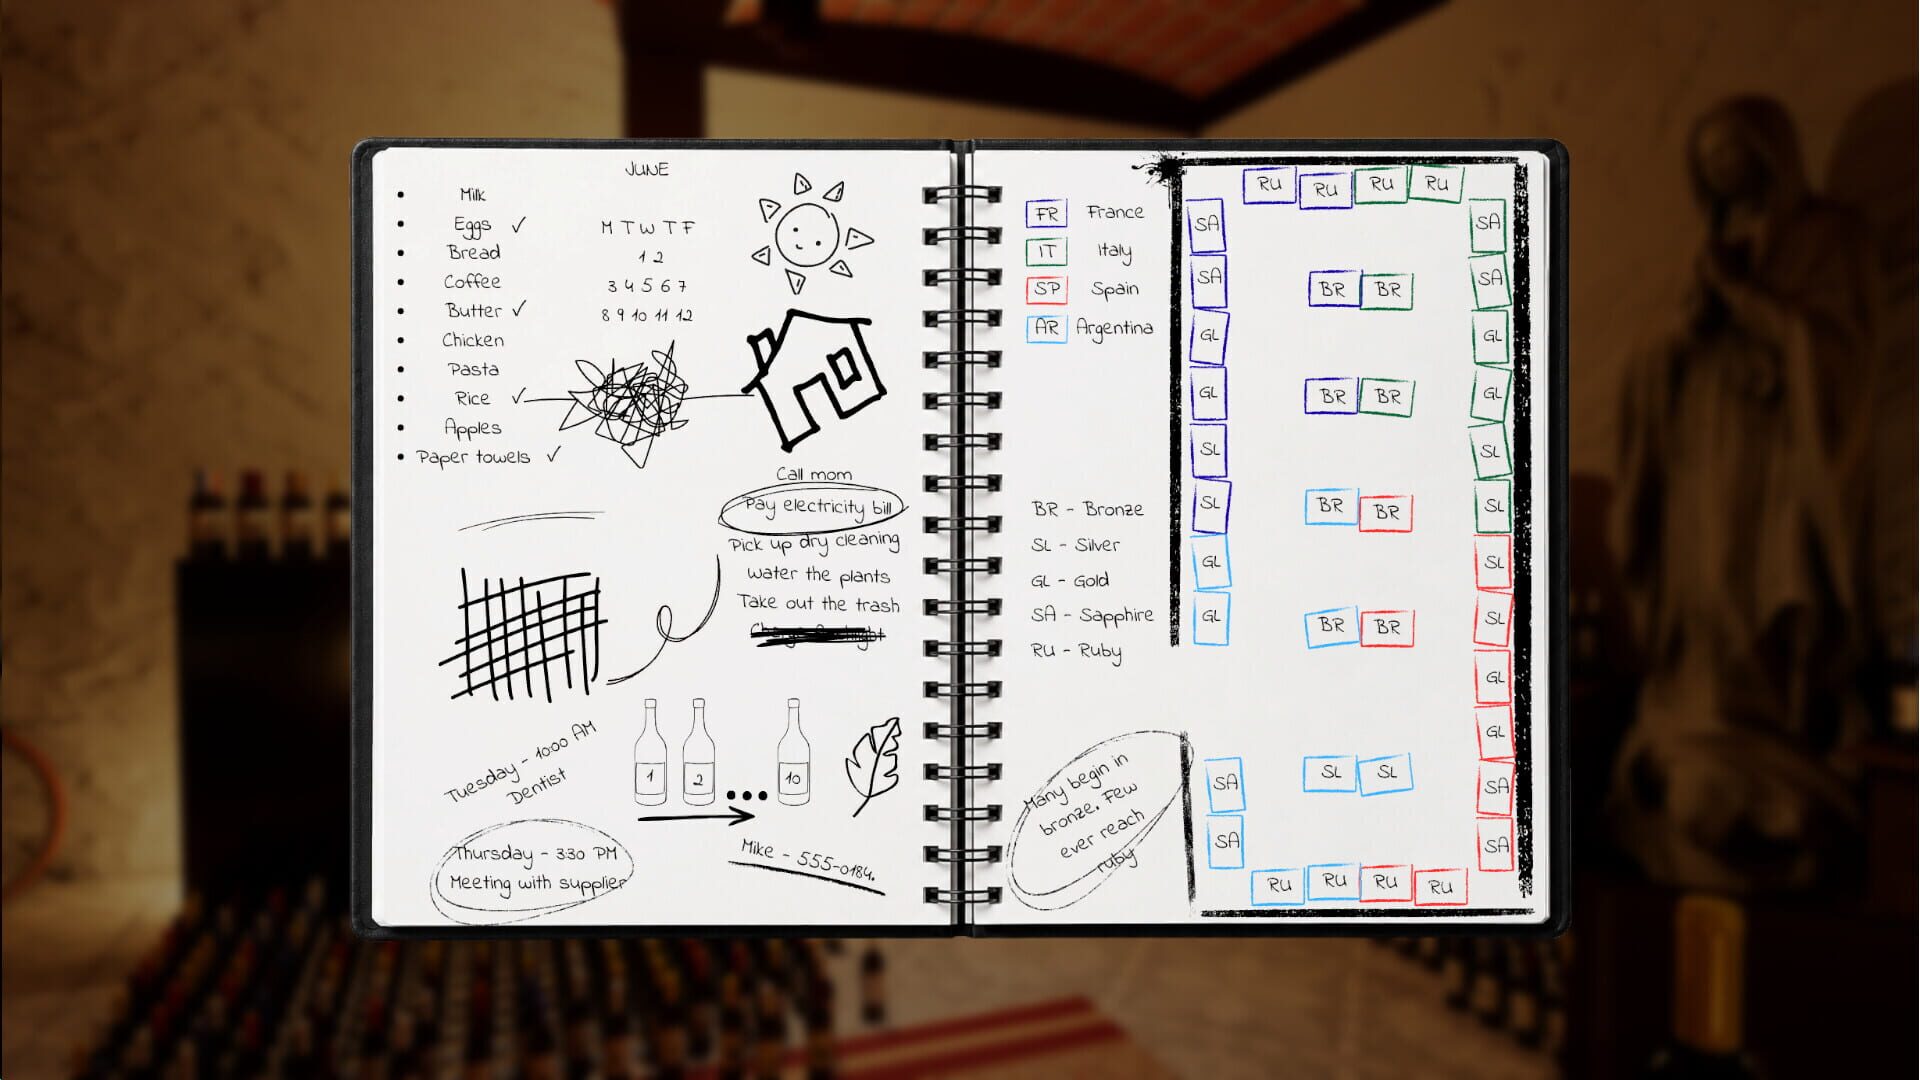 JUNE
Milk
Eggs ✓
Bread
Coffee
Butter ✓
Chicken
Pasta
Rice ✓
Apples
Paper towels ✓
M T W T F
1 2
3 4 5 6 7
8 9 10 11 12
Call mom
Pay electricity bill
Pick up dry cleaning
Water the plants
Take out the trash
Tuesday - 10:00 AM
Dentist
1 2 ... 10
Thursday - 3:30 PM
Meeting with supplier
Mike - 555-0184.
FR France
IT Italy
SP Spain
AR Argentina
BR - Bronze
SL - Silver
GL - Gold
SA - Sapphire
RU - Ruby
Many begin in
bronze. Few
ever reach
ruby
RU RU RU RU
SA SA
SA BR BR SA
GL GL
GL BR BR GL
SL SL
SL BR BR SL
GL SL
GL BR BR SL
GL
GL
SA SL SL SA
SA SA
RU RU RU RU